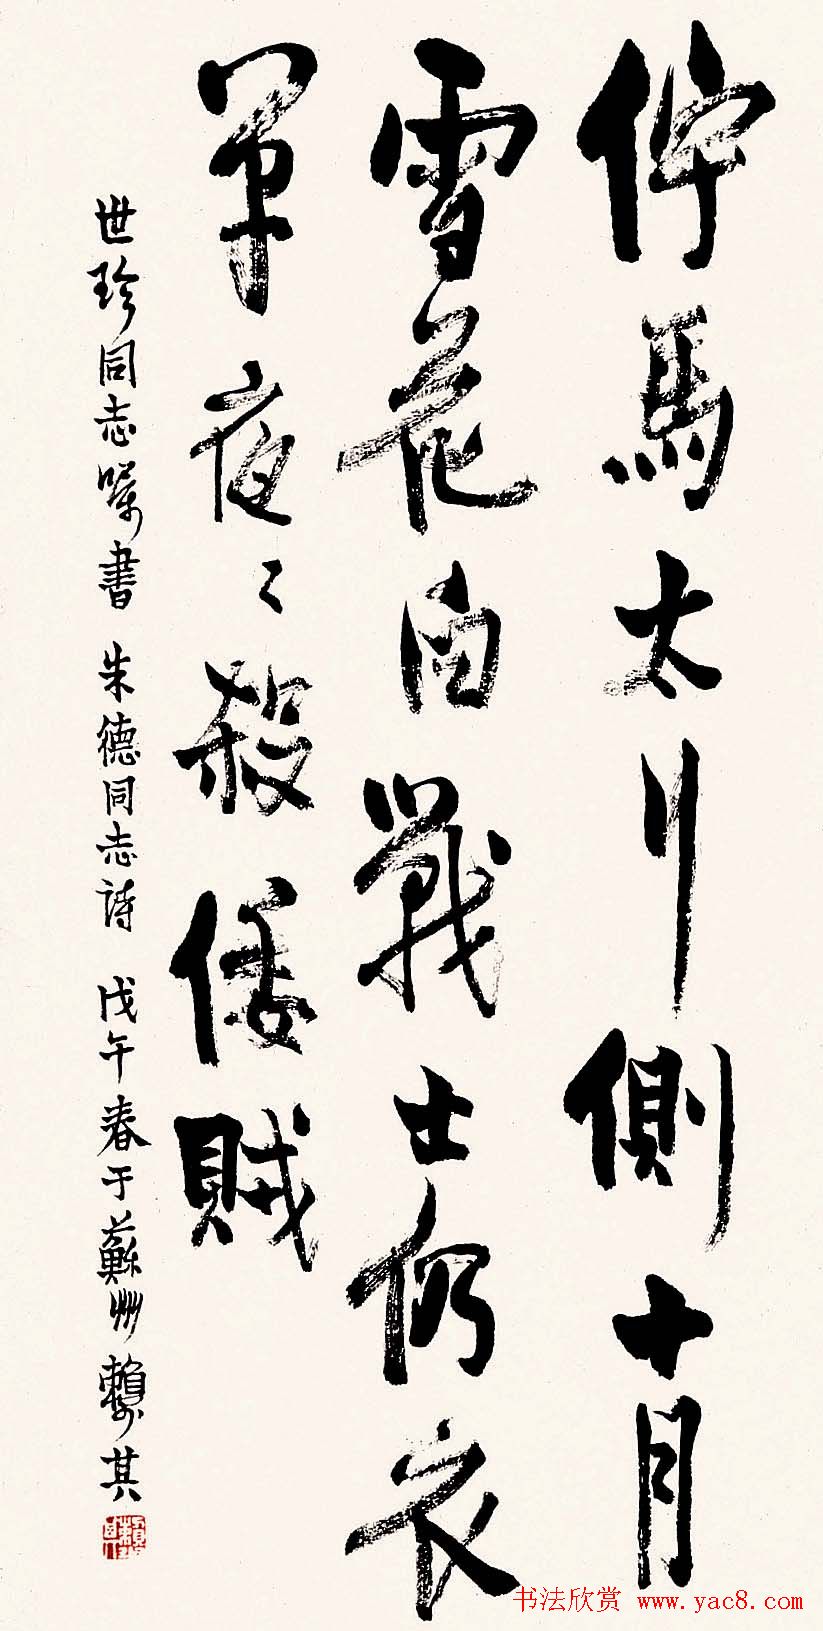 佇馬太行側十月
雪花白戰士仍衣
單夜々殺倭賊
世珍同志嘱書 朱德同志詩 戊午春于蘇州 賴少其
书法欣赏 www.yac8.com